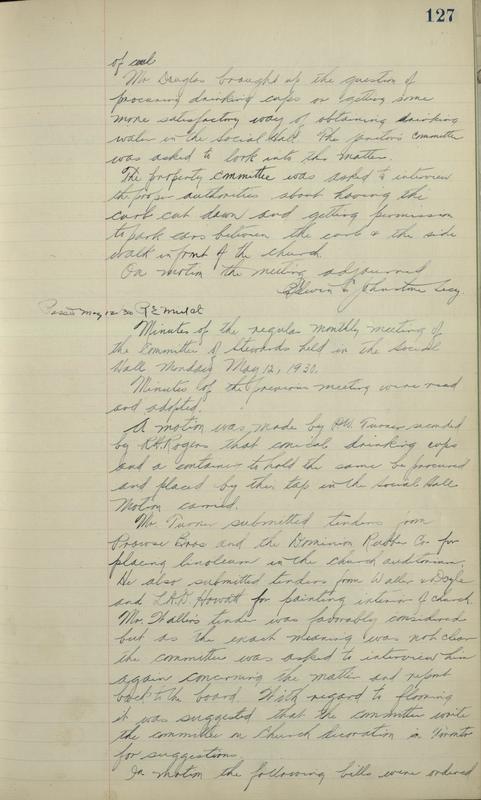 127
of coal
Mr Douglas brought up the question of
procuring drinking cups or getting some
more satisfactory way of obtaining drinking
water in the Social Hall. The pastor's committee
was asked to look into this matter.
The property committee was asked to interview
the proper authorities about having the
curb cut down and getting permission
to park cars between the curb & the side
walk in front of the church.
On motion the meeting adjourned
Edwin C Johnstone Secy.
Passed May 12 30
Minutes of the regular monthly meeting of
the Committee of Stewards held in the Social
Hall Monday May 12, 1930.
Minutes of the previous meeting were read
and adopted.
A motion was made by HW. Turner seconded
by R.H. Rogers that conical drinking cups
and a container to hold the same be procured
and placed by the tap in the Social Hall
Motion carried.
Mr. Turner submitted tenders from
Prowse Bros and the Dominion Rubber Co. for
placing linoleum in the church auditorium.
He also submitted tenders from Waller & Doyle
and L.A.D. Howatt for painting interior of church.
Mr. Waller's tender was favorably considered
but as the exact meaning was not clear
the committee was asked to interview him
again concerning the matter and report
back to the board. With regard to flooring
it was suggested that the committee write
the committee on Church Decoration in Toronto
for suggestions.
On motion the following bills were ordered